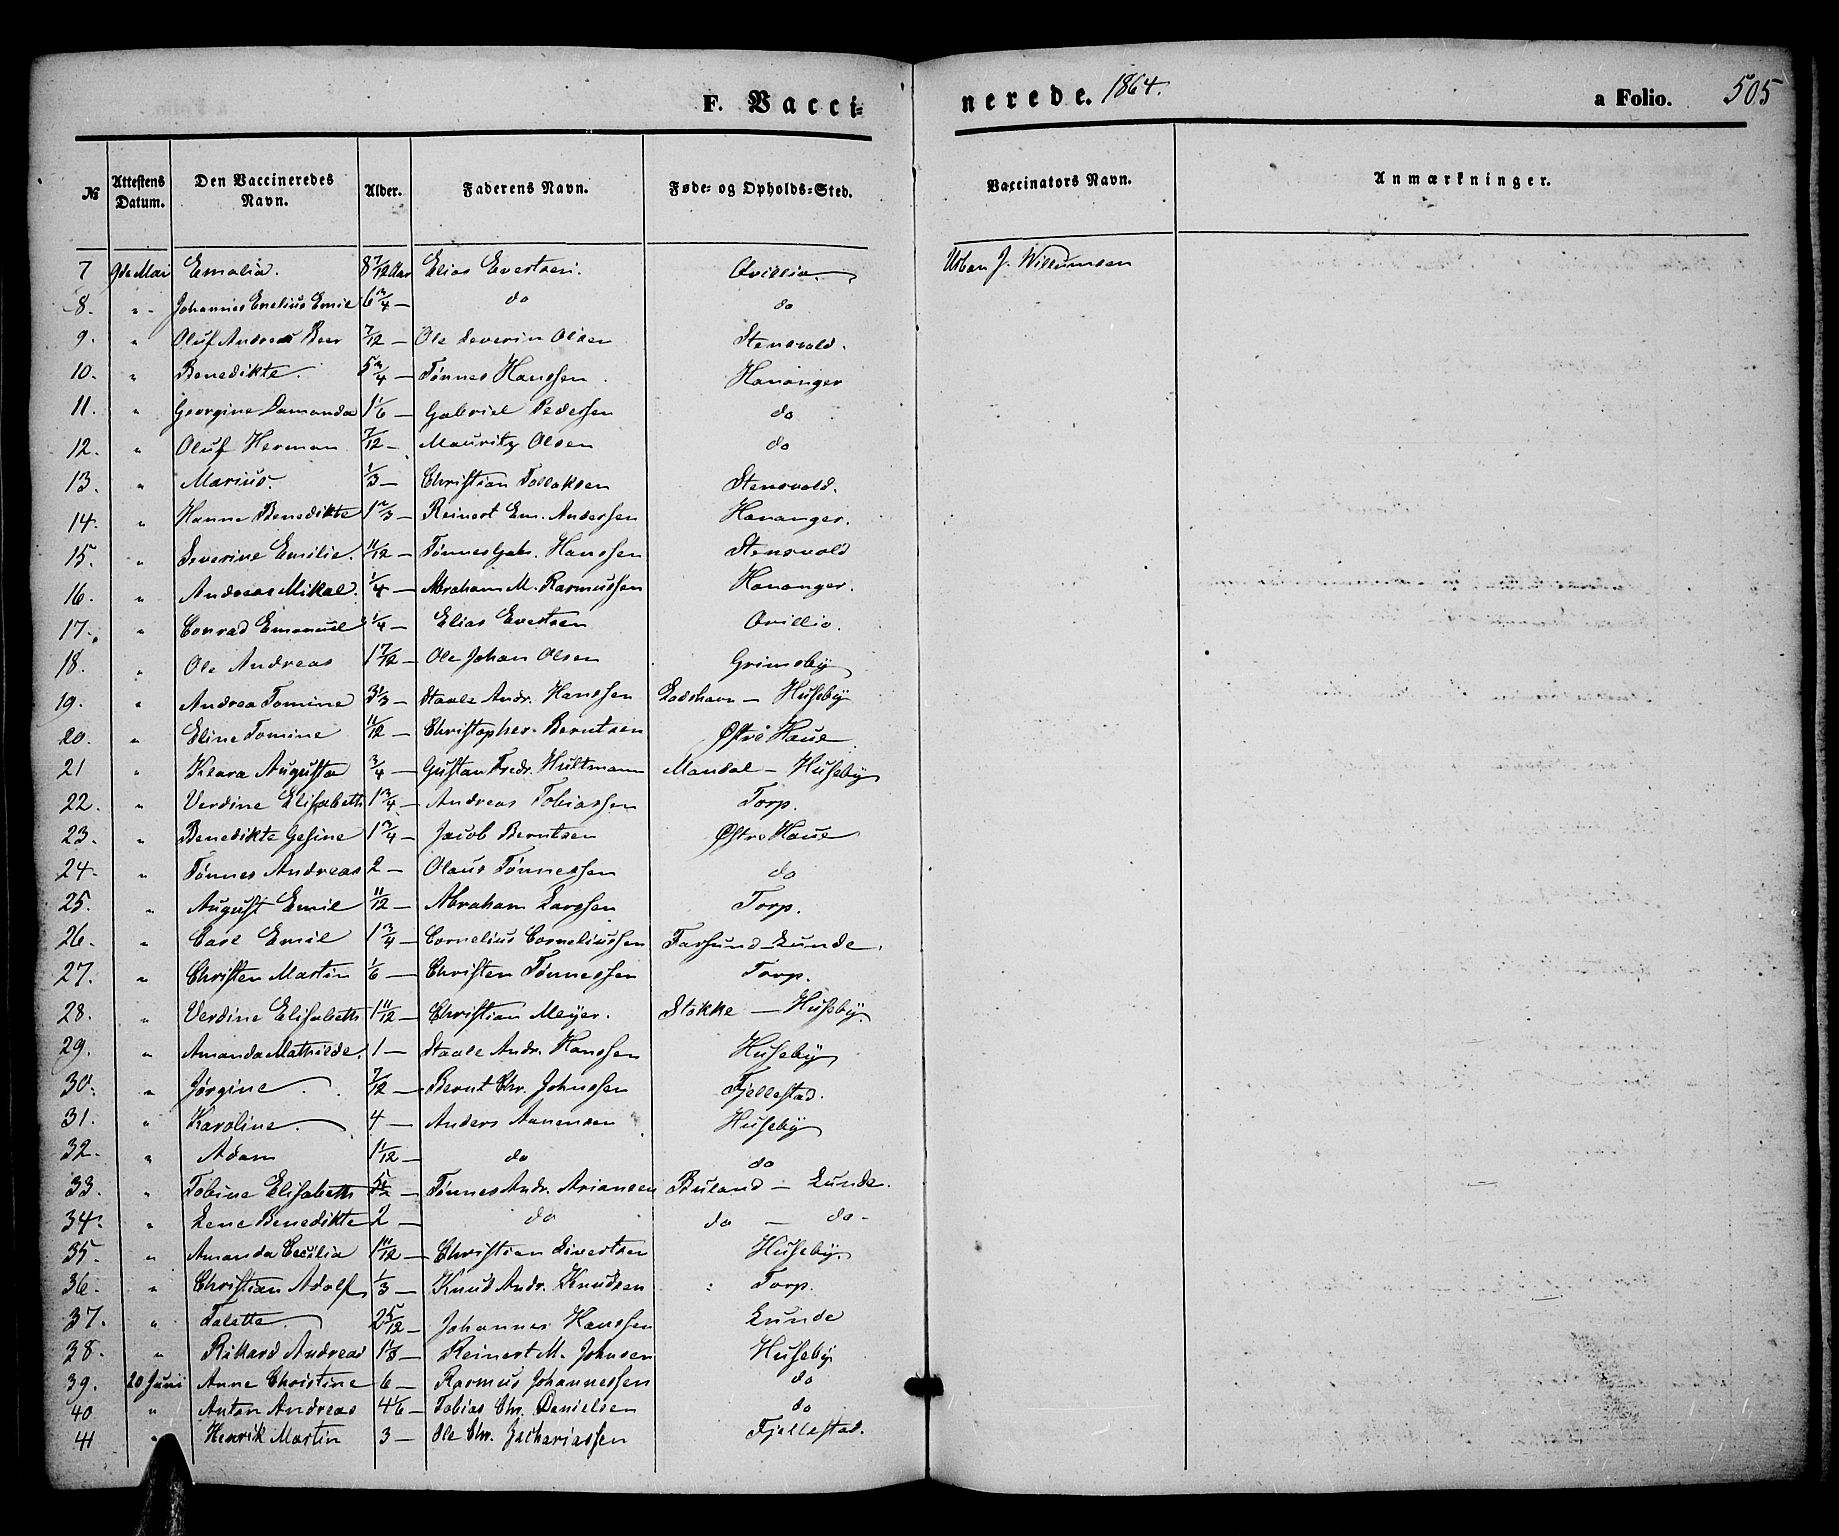 F. Vacci-
nerede. 1864.
a Folio. 505
№ Attestens Datum. Den Vaccineredes Navn. Alder. Faderens Navn. Føde- og Opholds-Sted. Vaccinators Navn. Anmærkninger.
7 9de Mai Emalia. 8 7/12 Aar Elias Evertsen. Ovillia. Urban J. Willumsen
8. " Johannes Emelius Emil 6 3/4 — do do
9. " Oluf Andreas Beer 7/12 — Ole Severin Olsen Stensvold.
10. " Benedikte. 5 3/4 — Tønnes Hanssen. Hananger
11. " Georgine Lamanda 1 1/6 — Gabriel Pedersen do
12. " Oluf Herman 7/12 — Mauritz Olsen do
13. " Marius. 1/3 — Christian Tollaksen Stensvold.
14. " Hanne Benedikte 1 2/3 — Reinert Em. Andersen Hananger.
15. " Severine Emilie. 11/12 — Tønnes Gabr. Hanssen Stensvold
16. " Andreas Mikal. 1/4 — Abraham M. Rasmussen Hananger.
17. " Conrad Emanuel 1/4 — Elias Evertsen Ovillia.
18. " Ole Andreas 1 7/12 — Ole Johan Olsen Grimsby
19. " Andrea Tomine 3 1/3 — Staale Andr. Hanssen Loshavn — Huseby
20. " Eline Tomine 11/12 — Christopher Berntsen Østre Haue
21 " Klara Augusta 3/4 — Gustav Fredr. Hultmann Mandal — Huseby
22. " Verdine Elisabeth 1 3/4 — Andreas Tobiassen Torp.
23. " Benedikte Gesine 1 3/4 — Jacob Berntsen Østre Haue
24. " Tønnes Andreas 2 — Olaus Tønnessen do
25. " August Emil 11/12 — Abraham Larssen Torp.
26. " Carl Emil 1 3/4 — Cornelius Corneliussen Farsund — Lunde.
27. " Christen Martin 1/6 — Christen Tønnessen Torp.
28. " Verdine Elisabeth 1 11/12 — Christian Meyer. Stokke — Huseby.
29. " Amanda Mathilde. 1 — Staale Andr. Hanssen Huseby
30. " Jørgine 7/12 — Bernt Chr. Johnssen Fjellestad.
31. " Karoline. 4 — Anders Aanensen Huseby
32. " Adam 1 1/12 — do do
33. " Tobine Elisabeth — Tønnes Andr. Ariansen Buland — Lunde.
34. " Lene Benedikte 2 — do do — do-
35. " Amanda Cecilia 1 11/12 — Christian Sivertsen Huseby.
36. " Christian Adolf 1/3 — Knud Andr. Knudsen Torp.
37. " Talette. 2 5/12 — Johannes Hanssen Lunde
38. " Rikard Andreas 1 1/3 — Reinert M. Johnsen Huseby
39. 20 Juni Anne Christine 6 — Rasmus Johannessen do
40 " Anton Andreas 4 1/6 — Tobias Chr. Danielsen do
41 " Henrik Martin 3 — Ole Chr. Zachariassen Fjellestad.